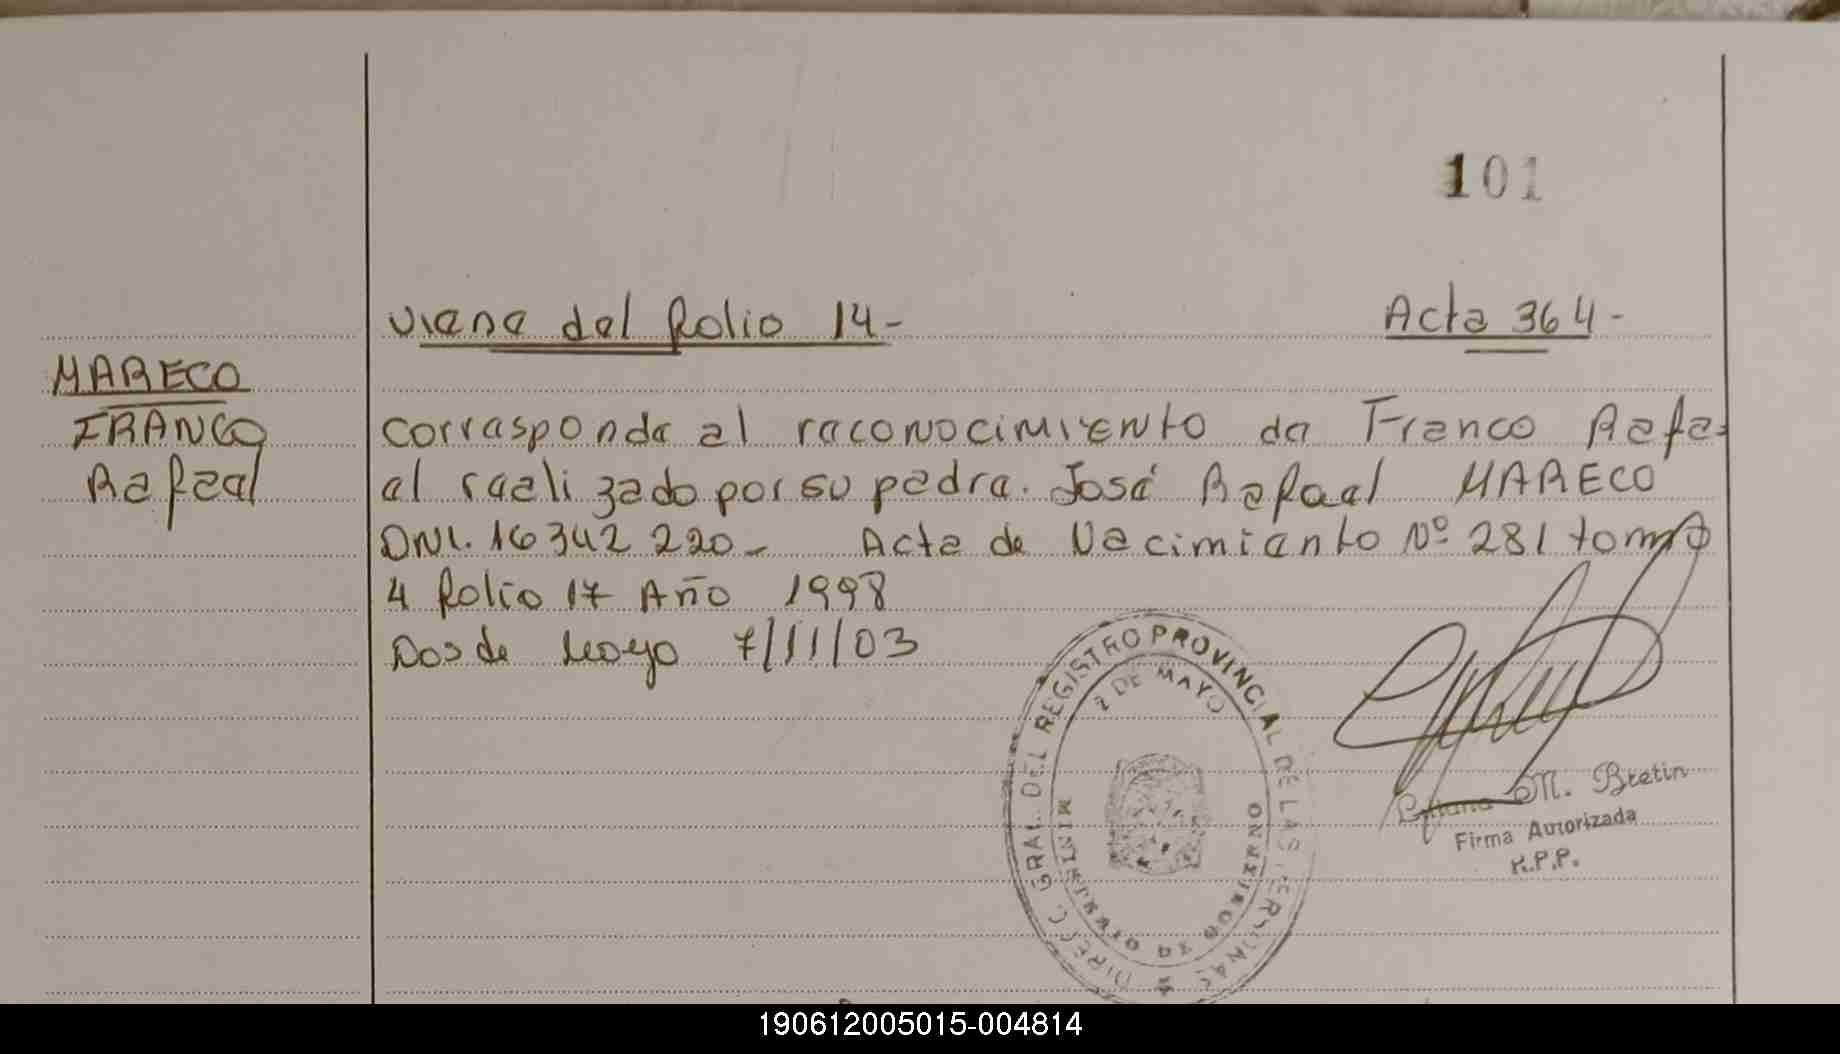 101
viene del folio 14- Acta 364-
MARECO
FRANCO
Rafael
corresponde al reconocimiento de Franco Rafa=
el realizado por su padre. José Rafael MARECO
DNI. 16342 220- Acta de Nacimiento Nº 281 tomo
4 folio 17 Año 1998
Dos de Mayo 7/11/03
DIRECC. GRAL. DEL REGISTRO PROVINCIAL DE LAS PERSONAS
2 DE MAYO
MINISTERIO DE GOBIERNO
M. Bretin
Firma Autorizada
R.P.P.
190612005015-004814